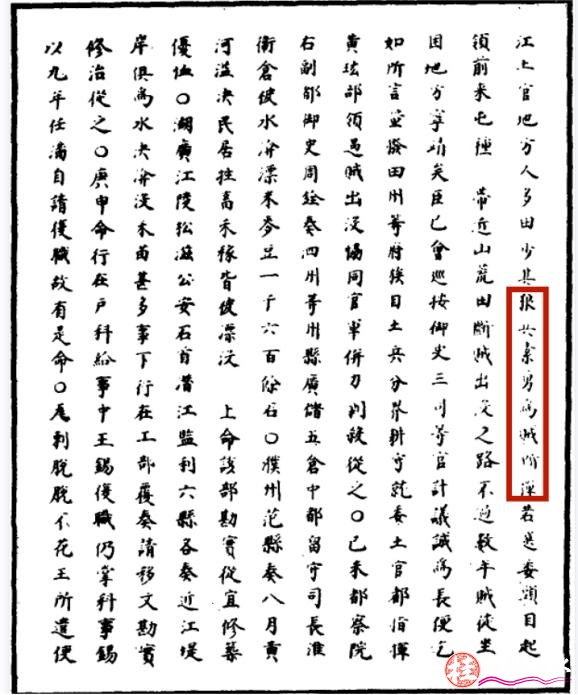 江土官地方人多田少其狼兵素勇爲賊所憚若選委頭目起
領前來屯種 帶近山荒田斷賊出沒之路不過數年賊徒坐
困地方寧靖矣臣已會巡按御史三司等官計議誠爲長便乞
如所言筮撥田州等府族目土兵分界耕守就委土官都指揮
黃竑部領遇賊出沒協同官軍併力剿殺從之○己未都察院
右副都御史周銓奏四州等州縣廣儲五倉中都留守司長淮
衛倉被水渰漂米麥豆一千六百餘石○濮州范縣奏八月黃
河溢決民居扗高禾稼皆被漂沒 上命該部勘實從宜修築
優恤○湖廣江陵松滋公安石首潛江監利六縣各奏近江堤
岸俱爲水決渰沒禾苗甚多事下行在工部覆奏請移文勘實
修治從之○庚申命行在戶科給事中王錫復職仍掌科事錫
以九年任滿自請復職故有是命○瓦剌脫脫不花王所遣使